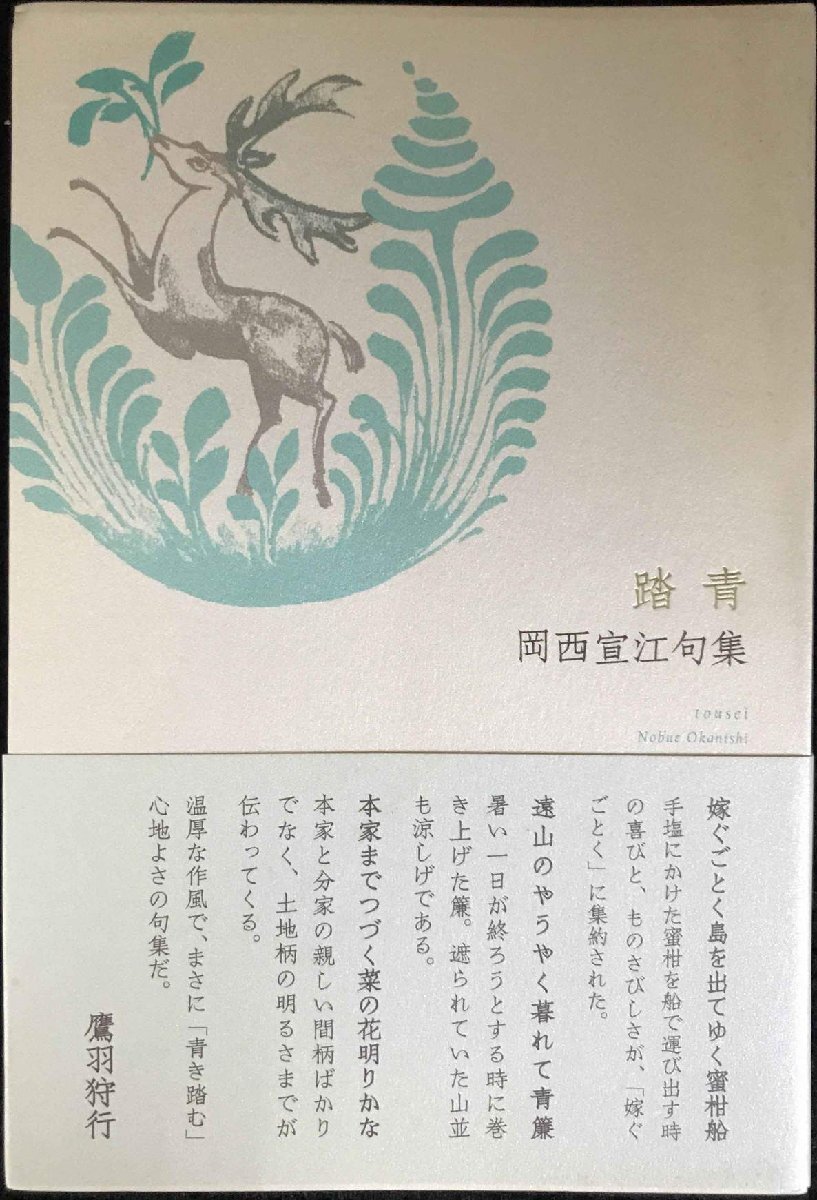 踏青
岡西宣江句集
tousei
Nobue Okanishi
嫁ぐごとく島を出てゆく蜜柑船
手塩にかけた蜜柑を船で運び出す時
の喜びと、ものさびしさが、「嫁ぐ
ごとく」に集約された。
遠山のやうやく暮れて青簾
暑い一日が終ろうとする時に巻
き上げた簾。遮られていた山並
も涼しげである。
本家までつづく菜の花明りかな
本家と分家の親しい間柄ばかり
でなく、土地柄の明るさまでが
伝わってくる。
温厚な作風で、まさに「青き踏む」
心地よさの句集だ。
鷹羽狩行